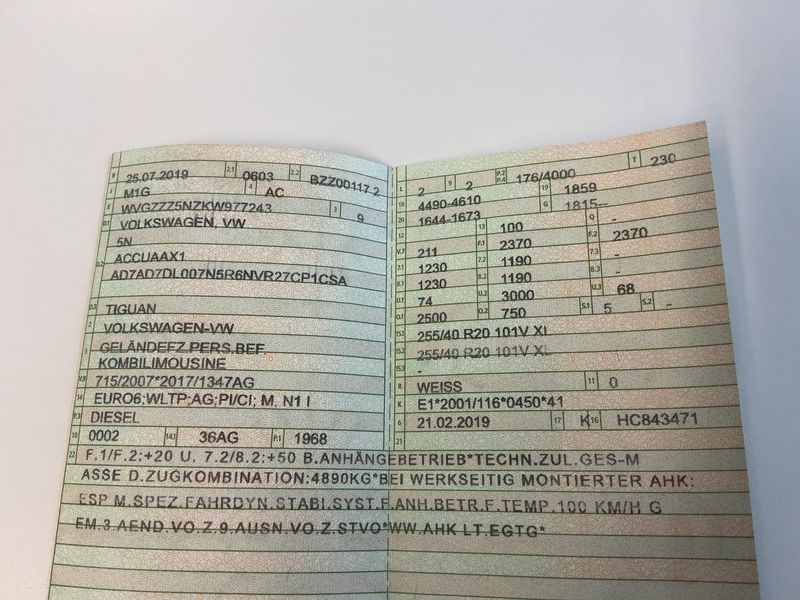 B 25.07.2019 2.1 0603 2.2 BZZ00117 2
J M1G 4 AC
E WVGZZZ5NZKW977243 3 9
D.1 VOLKSWAGEN, VW
5N
D.2 ACCUAAX1
AD7AD7DL007N5R6NVR27CP1CSA
D.3 TIGUAN
2 VOLKSWAGEN-VW
5 GELÄNDEFZ.PERS.BEF.
KOMBILIMOUSINE
V.9 715/2007*2017/1347AG
14 EURO6;WLTP;AG;PI/CI; M, N1 I
P.3 DIESEL
10 0002 14.1 36AG P.1 1968
L 2 9 2 P.2 P.4 176/4000 T 230
18 4490-4610 19 1859
20 1644-1673 G 1815--
12 - 13 100 Q -
V.7 211 F.1 2370 F.2 2370
7.1 1230 7.2 1190 7.3 -
8.1 1230 8.2 1190 8.3 -
U.1 74 U.2 3000 U.3 68
O.1 2500 O.2 750 S.1 5 S.2 -
15.1 255/40 R20 101V XL
15.2 255/40 R20 101V XL
15.3 -
R WEISS 11 0
K E1*2001/116*0450*41
6 21.02.2019 17 K 16 HC843471
21
22 F.1/F.2:+20 U. 7.2/8.2:+50 B.ANHÄNGEBETRIEB*TECHN.ZUL.GES-M
ASSE D.ZUGKOMBINATION:4890KG*BEI WERKSEITIG MONTIERTER AHK:
ESP M.SPEZ.FAHRDYN.STABI.SYST.F.ANH.BETR.F.TEMP.100 KM/H G
EM.3.AEND.VO.Z.9.AUSN.VO.Z.STVO*WW.AHK LT.EGTG*